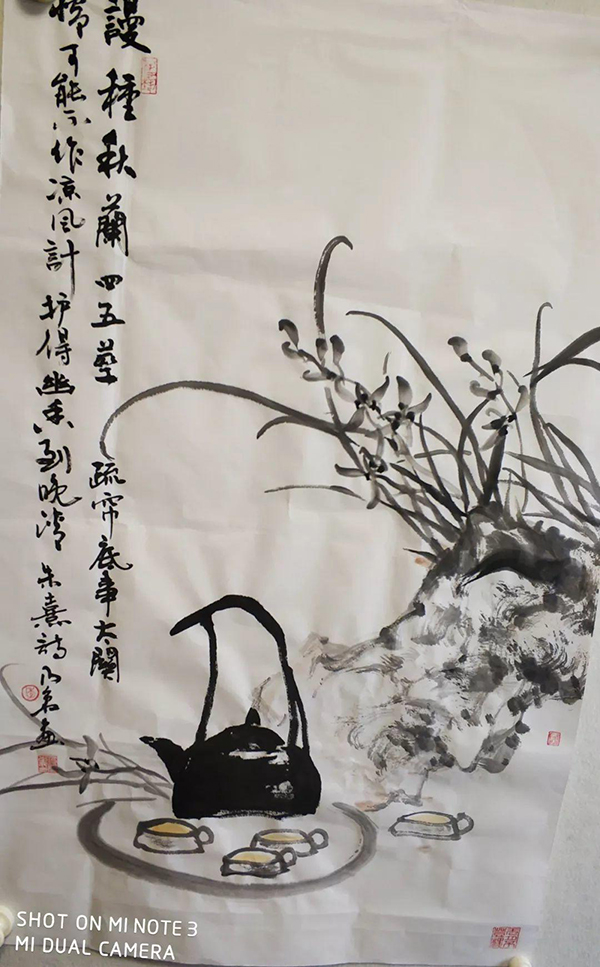 謾種秋蘭四五莖疏帘底事太関
情可能不作凉风計护得幽香到晚清朱熹詩畫
SHOT ON MI NOTE 3
MI DUAL CAMERA